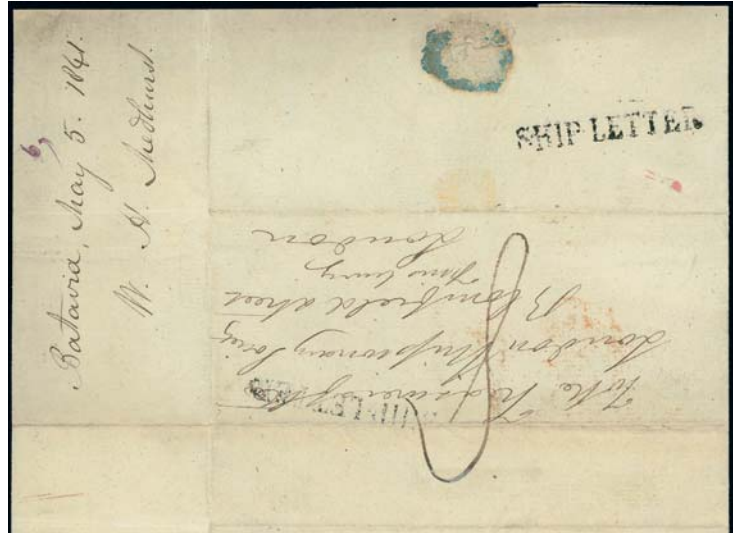 Batavia, May 5. 1841.
W. H. Medhurst.
SHIP LETTER
To the Treasurer of the
London Missionary Society
Blomfield street
London
SHIP LETTER
8